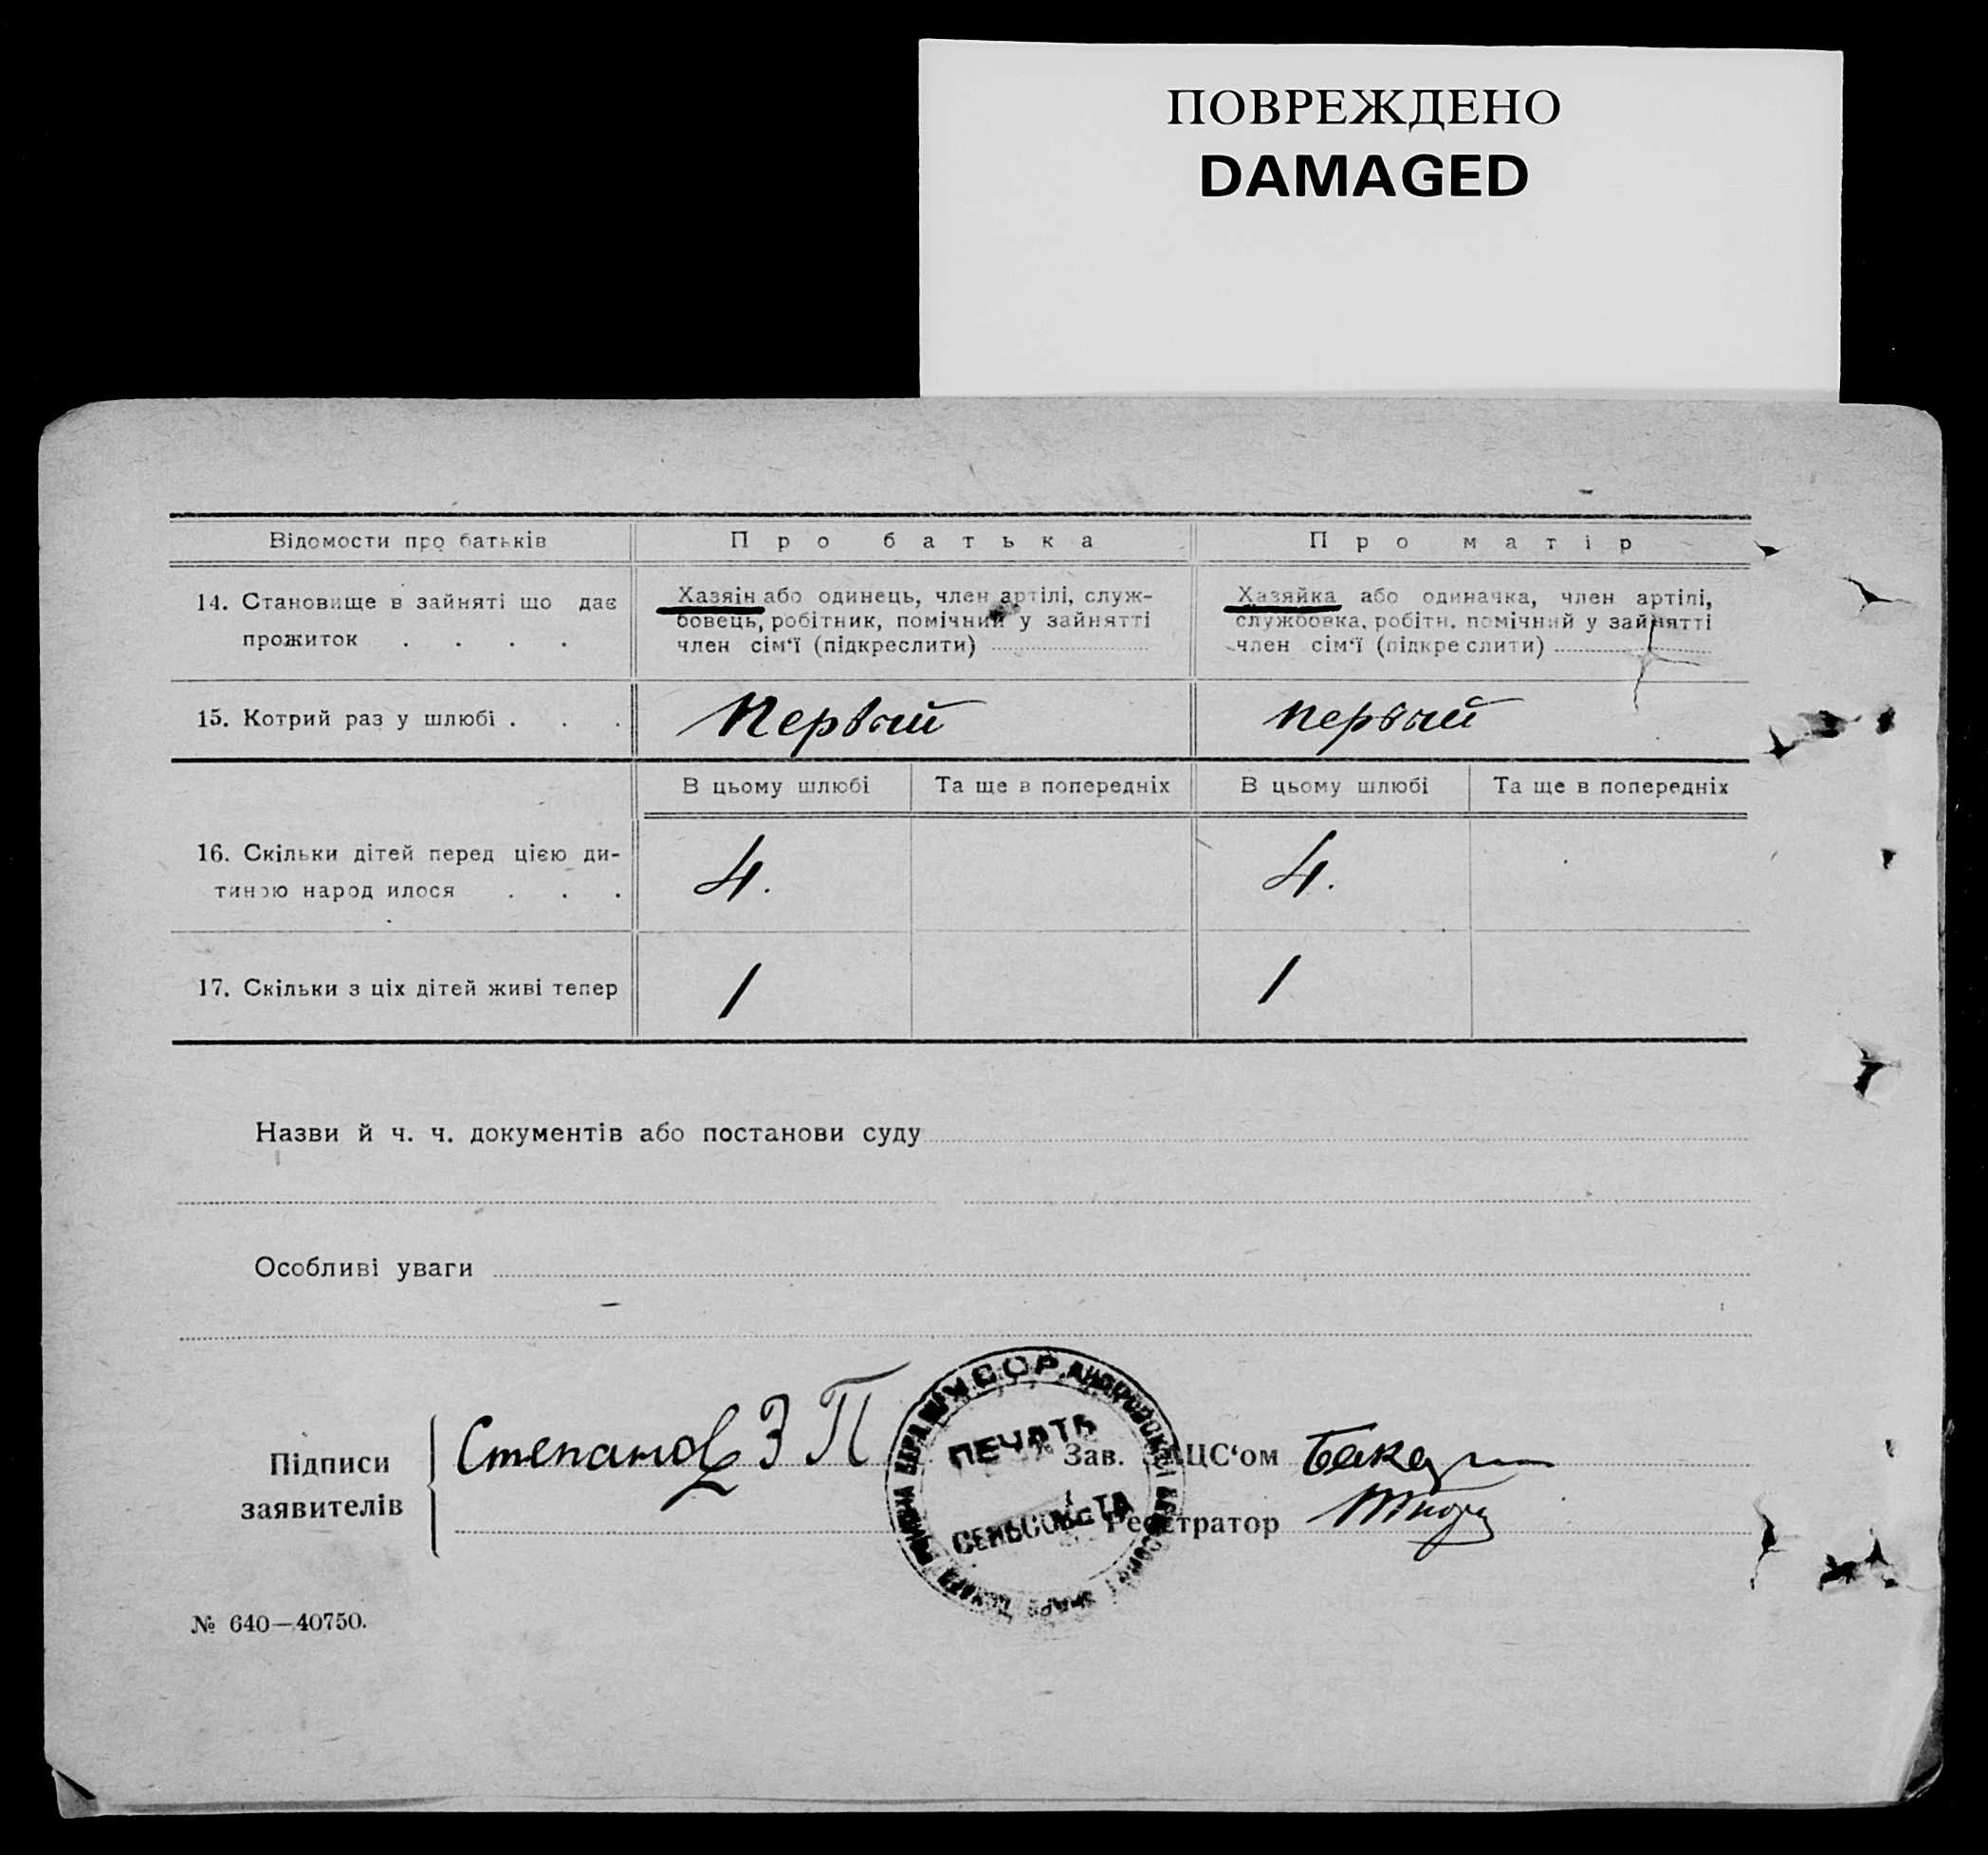 ПОВРЕЖДЕНО
DAMAGED
Відомости про батьків
Про батька
Про матір
14. Становище в зайняті що дає
прожиток . . . .
Хазяін або одинець, член артілі, служ-
бовець, робітник, помічний у зайнятті
член сім'ї (підкреслити)
Хазяйка або одиначка, член артілі,
службовка, робітн. помічний у зайнятті
член сім'ї (підкреслити)
15. Котрий раз у шлюбі . . .
Первый
первый
В цьому шлюбі
Та ще в попередніх
В цьому шлюбі
Та ще в попередніх
16. Скільки дітей перед цією ди-
тиною народилося . . .
4.
4.
17. Скільки з ціх дітей живі тепер
1
1
Назви й ч. ч. документів або постанови суду
Особливі уваги
Підписи
заявителів
Степанов З П
УССР
ПЕЧАТЬ
СЕЛЬСОВЕТА
Зав. ЗАЦС'ом
Реєстратор
№ 640—40750.